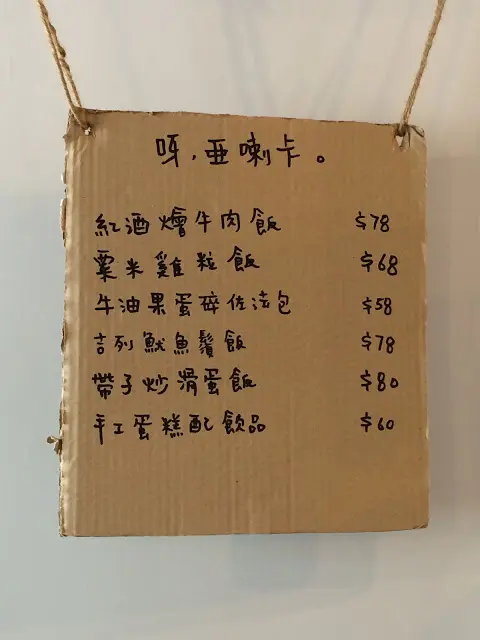 呀,亜喇卡。
紅酒燴牛肉飯 $78
粟米雞粒飯 $68
牛油果蛋碎佐法包 $58
吉列魷魚鬚飯 $78
帶子炒滑蛋飯 $80
手工蛋糕配飲品 $60